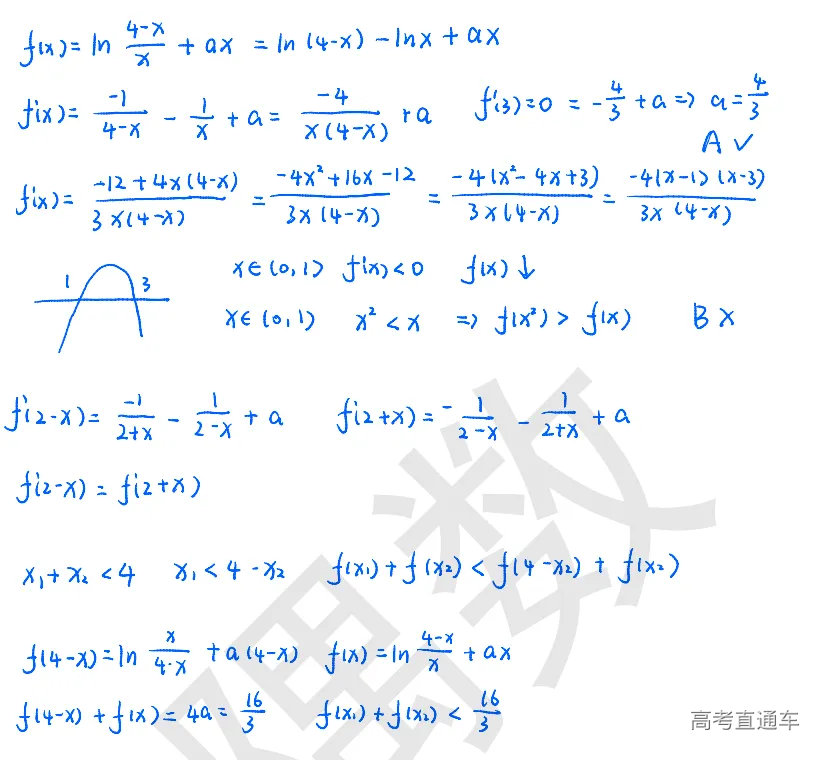 f(x)=ln (4-x)/x + ax = ln(4-x) - lnx + ax
f'(x)= -1/(4-x) - 1/x + a = -4/(x(4-x)) + a  f'(3)=0 = -4/3 + a ⇒ a=4/3
A ✓
f'(x)= (-12+4x(4-x))/(3x(4-x)) = (-4x²+16x-12)/(3x(4-x)) = (-4(x²-4x+3))/(3x(4-x)) = (-4(x-1)(x-3))/(3x(4-x))
1 3
x∈(0,1) f'(x)<0 f(x)↓
x∈(0,1) x²<x ⇒ f(x²)>f(x) B X
f'(2-x)= -1/(2+x) - 1/(2-x) + a  f'(2+x)= -1/(2-x) - 1/(2+x) + a
f'(2-x)=f'(2+x)
x₁+x₂<4 x₁<4-x₂ f(x₁)+f(x₂)<f(4-x₂)+f(x₂)
f(4-x)=ln x/(4-x) + a(4-x)  f(x)=ln (4-x)/x + ax
f(4-x)+f(x)=4a=16/3  f(x₁)+f(x₂)<16/3
偶数
高考直通车